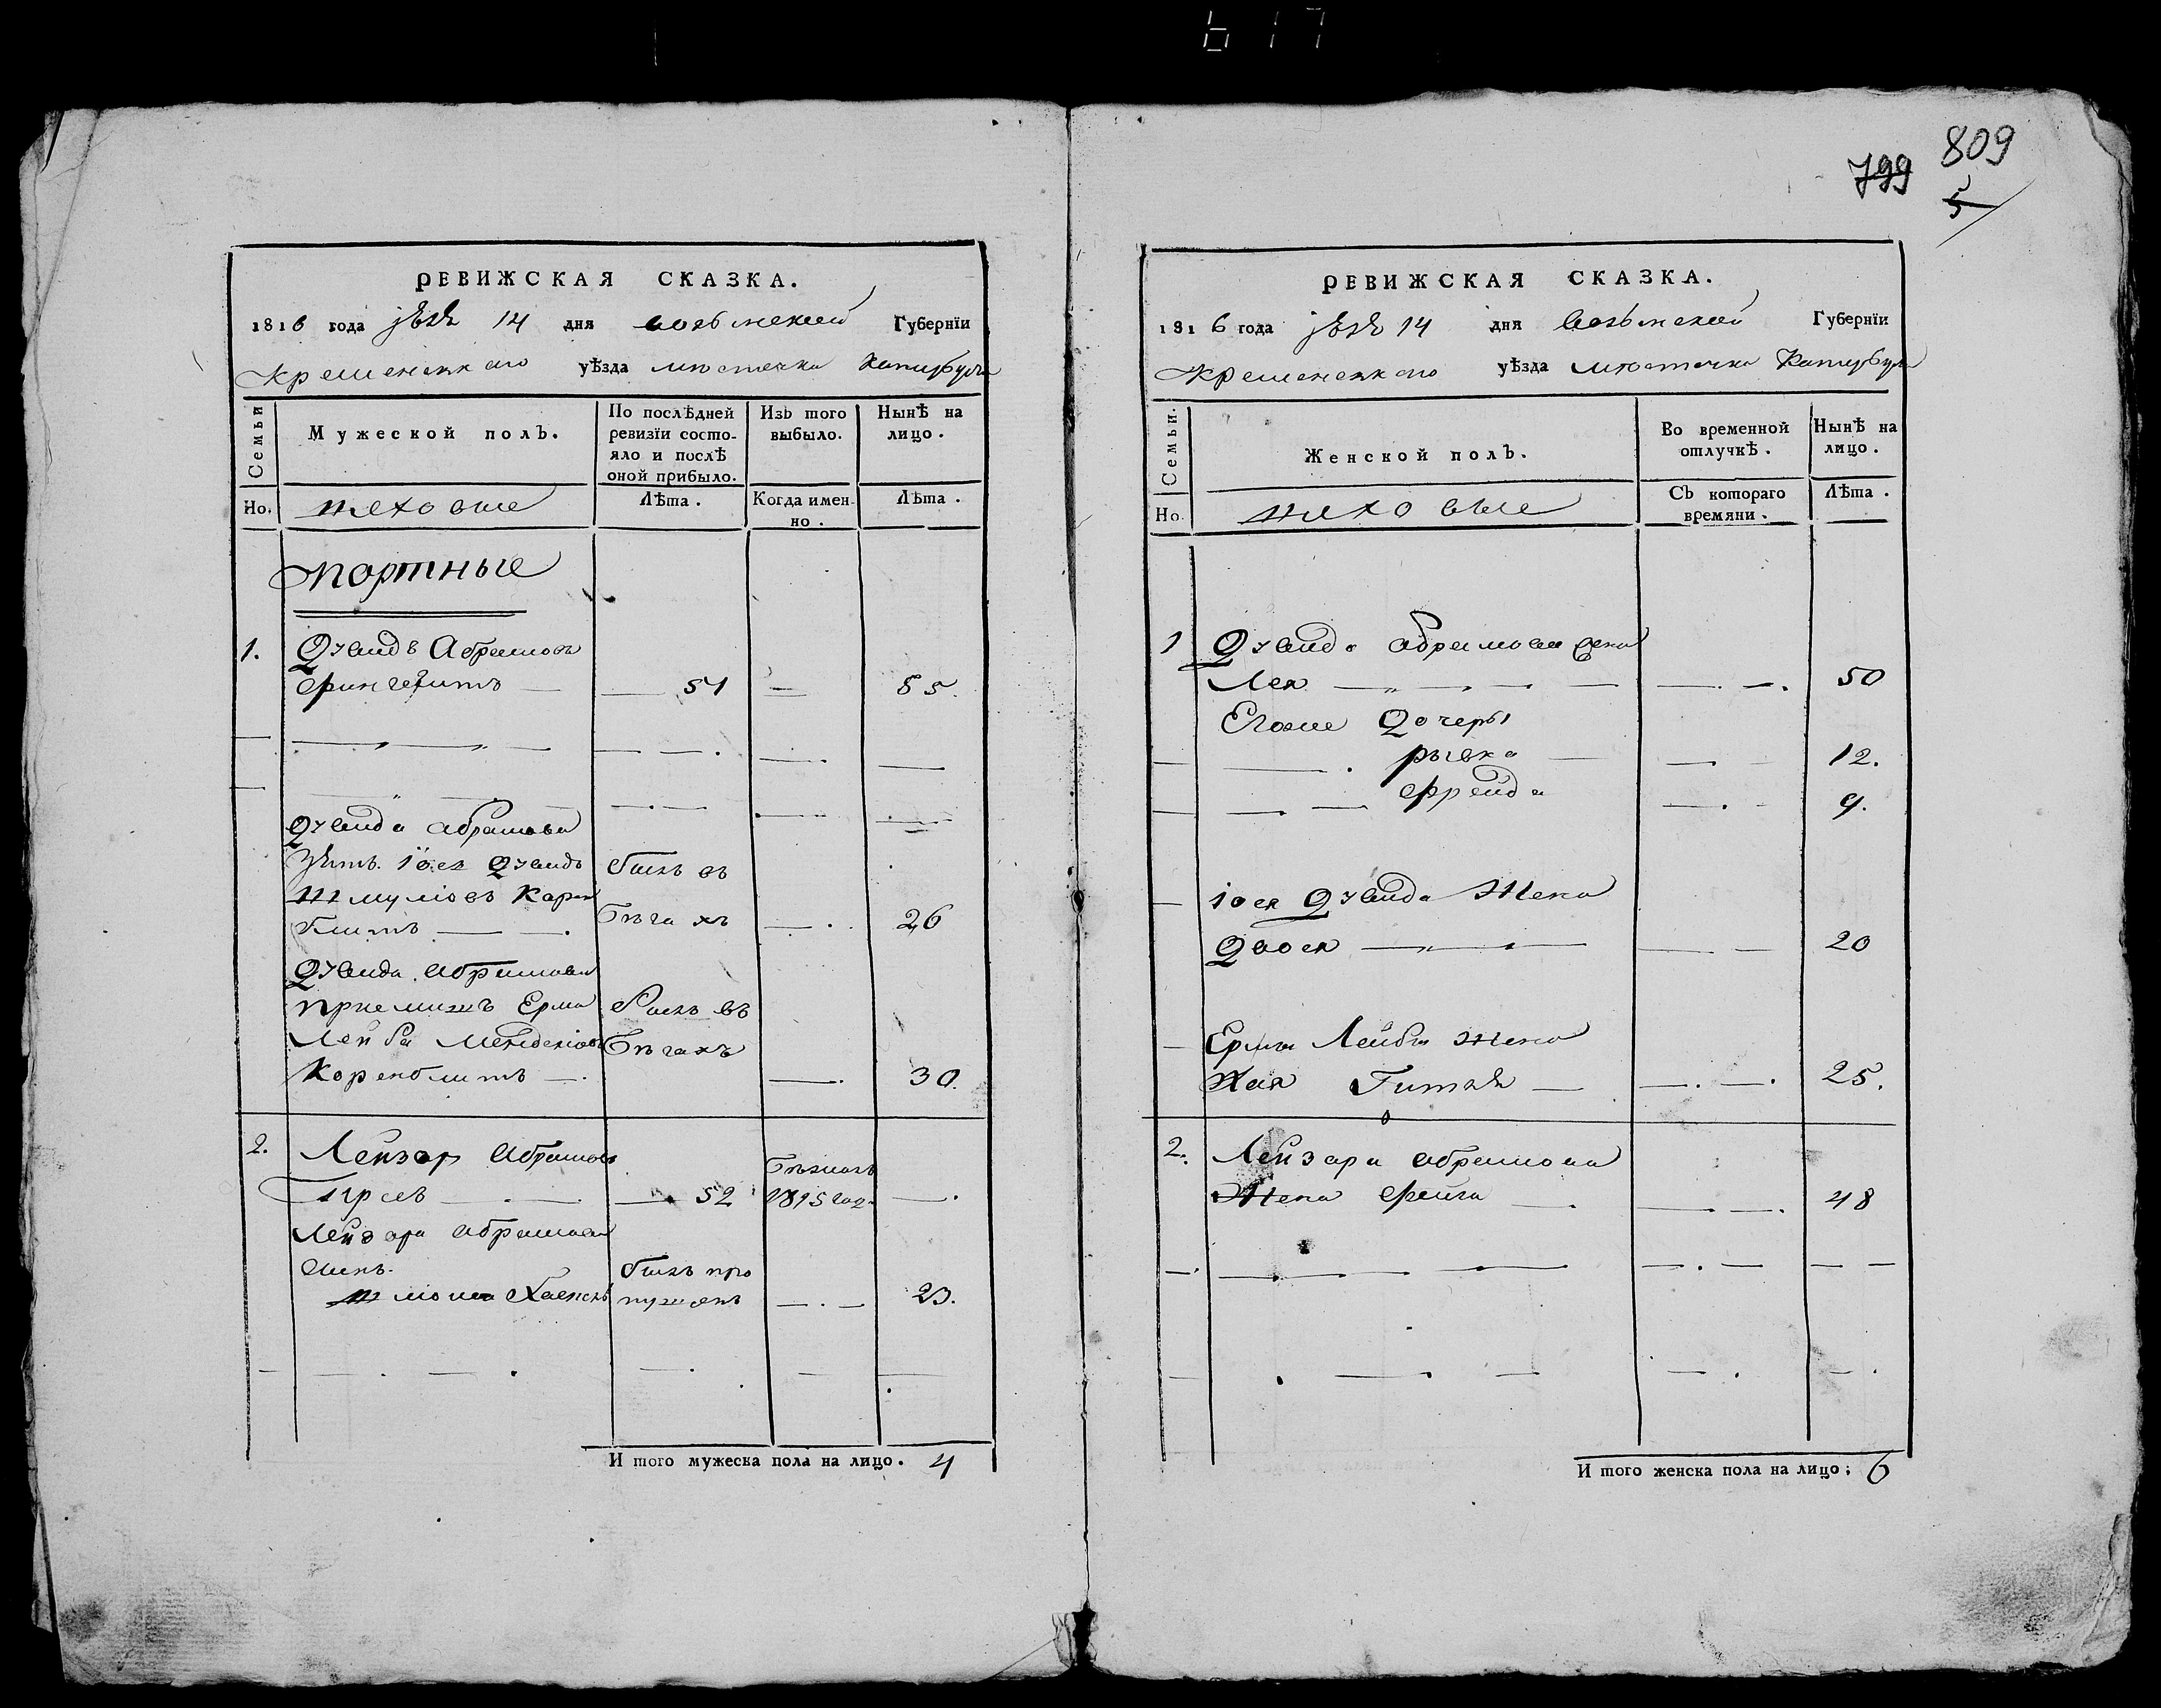 617
799 809
5
РЕВИЖСКАЯ СКАЗКА.
1816 года 14 дня волынской Губернїи
Кременецкаго уѣзда местечка Катербурга
Семьи
Мужеской полъ.
По послѣдней ревизїи состо-
яло и послѣ оной прибыло.
Изъ того выбыло.
Нынѣ на лицо.
Но.
цеховые
Лѣта.
Когда имен-
но.
Лѣта.
Портные
1. Дувидъ Абрамовъ
— 51 — 55.
Дувида Абрамова
Зять Іося Дувидъ былъ въ
Шмулiовъ Карен
блитъ — бегахъ — 26
Дувида Абрамова
приемишъ Ерма былъ въ
Лейба Менделiовъ бегахъ
Коренблитъ — — 30.
2. Лейзор Абрамовъ бежалъ
— 52 1815 год. —
Лейзора Абрамова
Сынъ былъ про
пущенъ — 23.
И того мужеска пола на лицо. 4
РЕВИЖСКАЯ СКАЗКА.
1816 года 14 дня Волынской Губернїи
Кременецкаго уѣзда местечка Катербурга
Семьи.
Женской полъ.
Во временной отлучкѣ.
Нынѣ на лицо.
Но.
цеховые
Съ котораго времяни.
Лѣта.
1 Дувида Абрамова жена
Лея — — 50
Егоже Дочеры
рывка — 12.
Фрейда — 9.
Іося Дувида Жена
Двося — — 20
Ерма Лейбы Жена
Хая Гитля — — 25.
2. Лейзора Абрамова
Жена Фейга — — 48
И того женска пола на лицо; 6